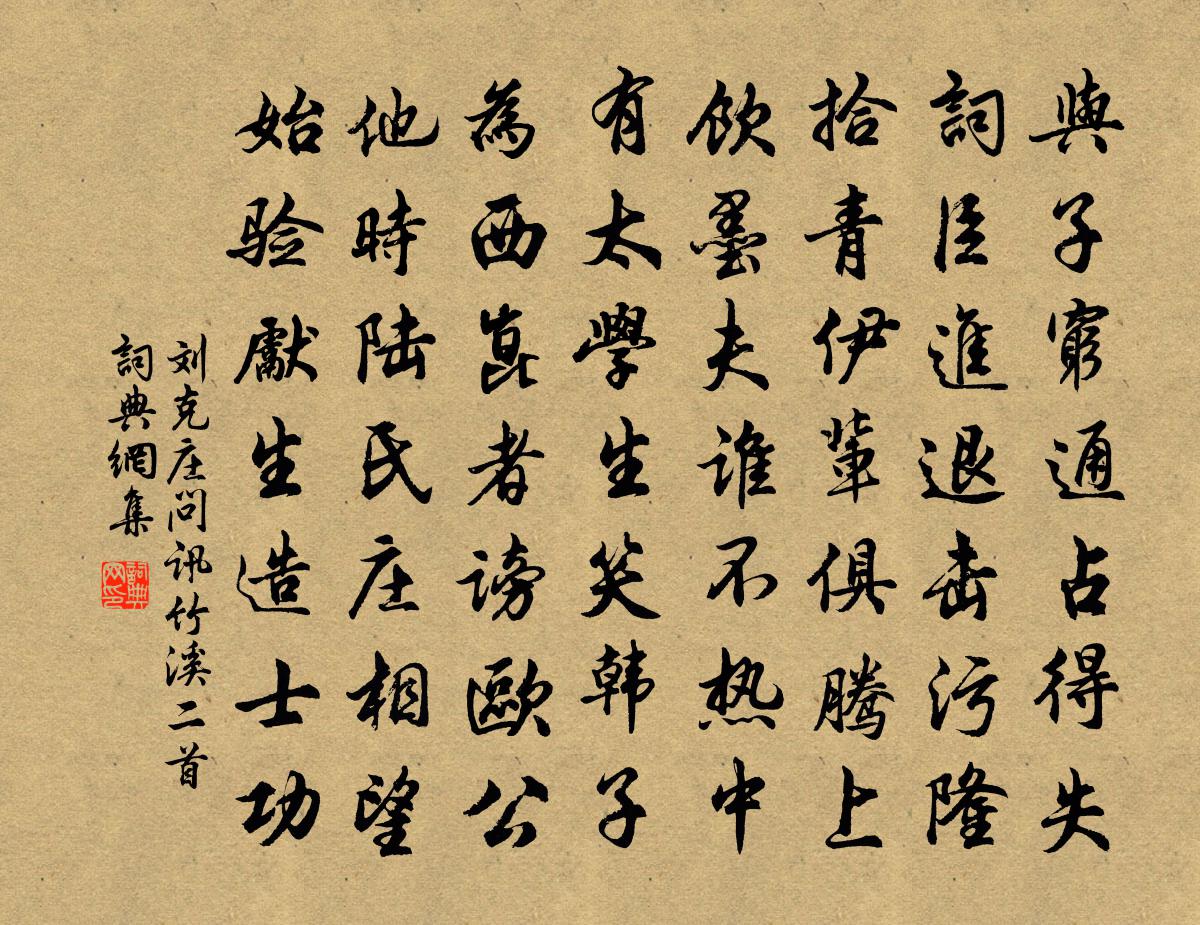 與子窮通占得失
詞臣進退击污隆
拾青伊輩俱騰上
飲墨夫誰不热中
有太學生笑韩子
為西崑者謗歐公
他時陆氏庄相望
始验獻生造士功
刘克庄问讯竹溪二首
詞典網集
詞典网印